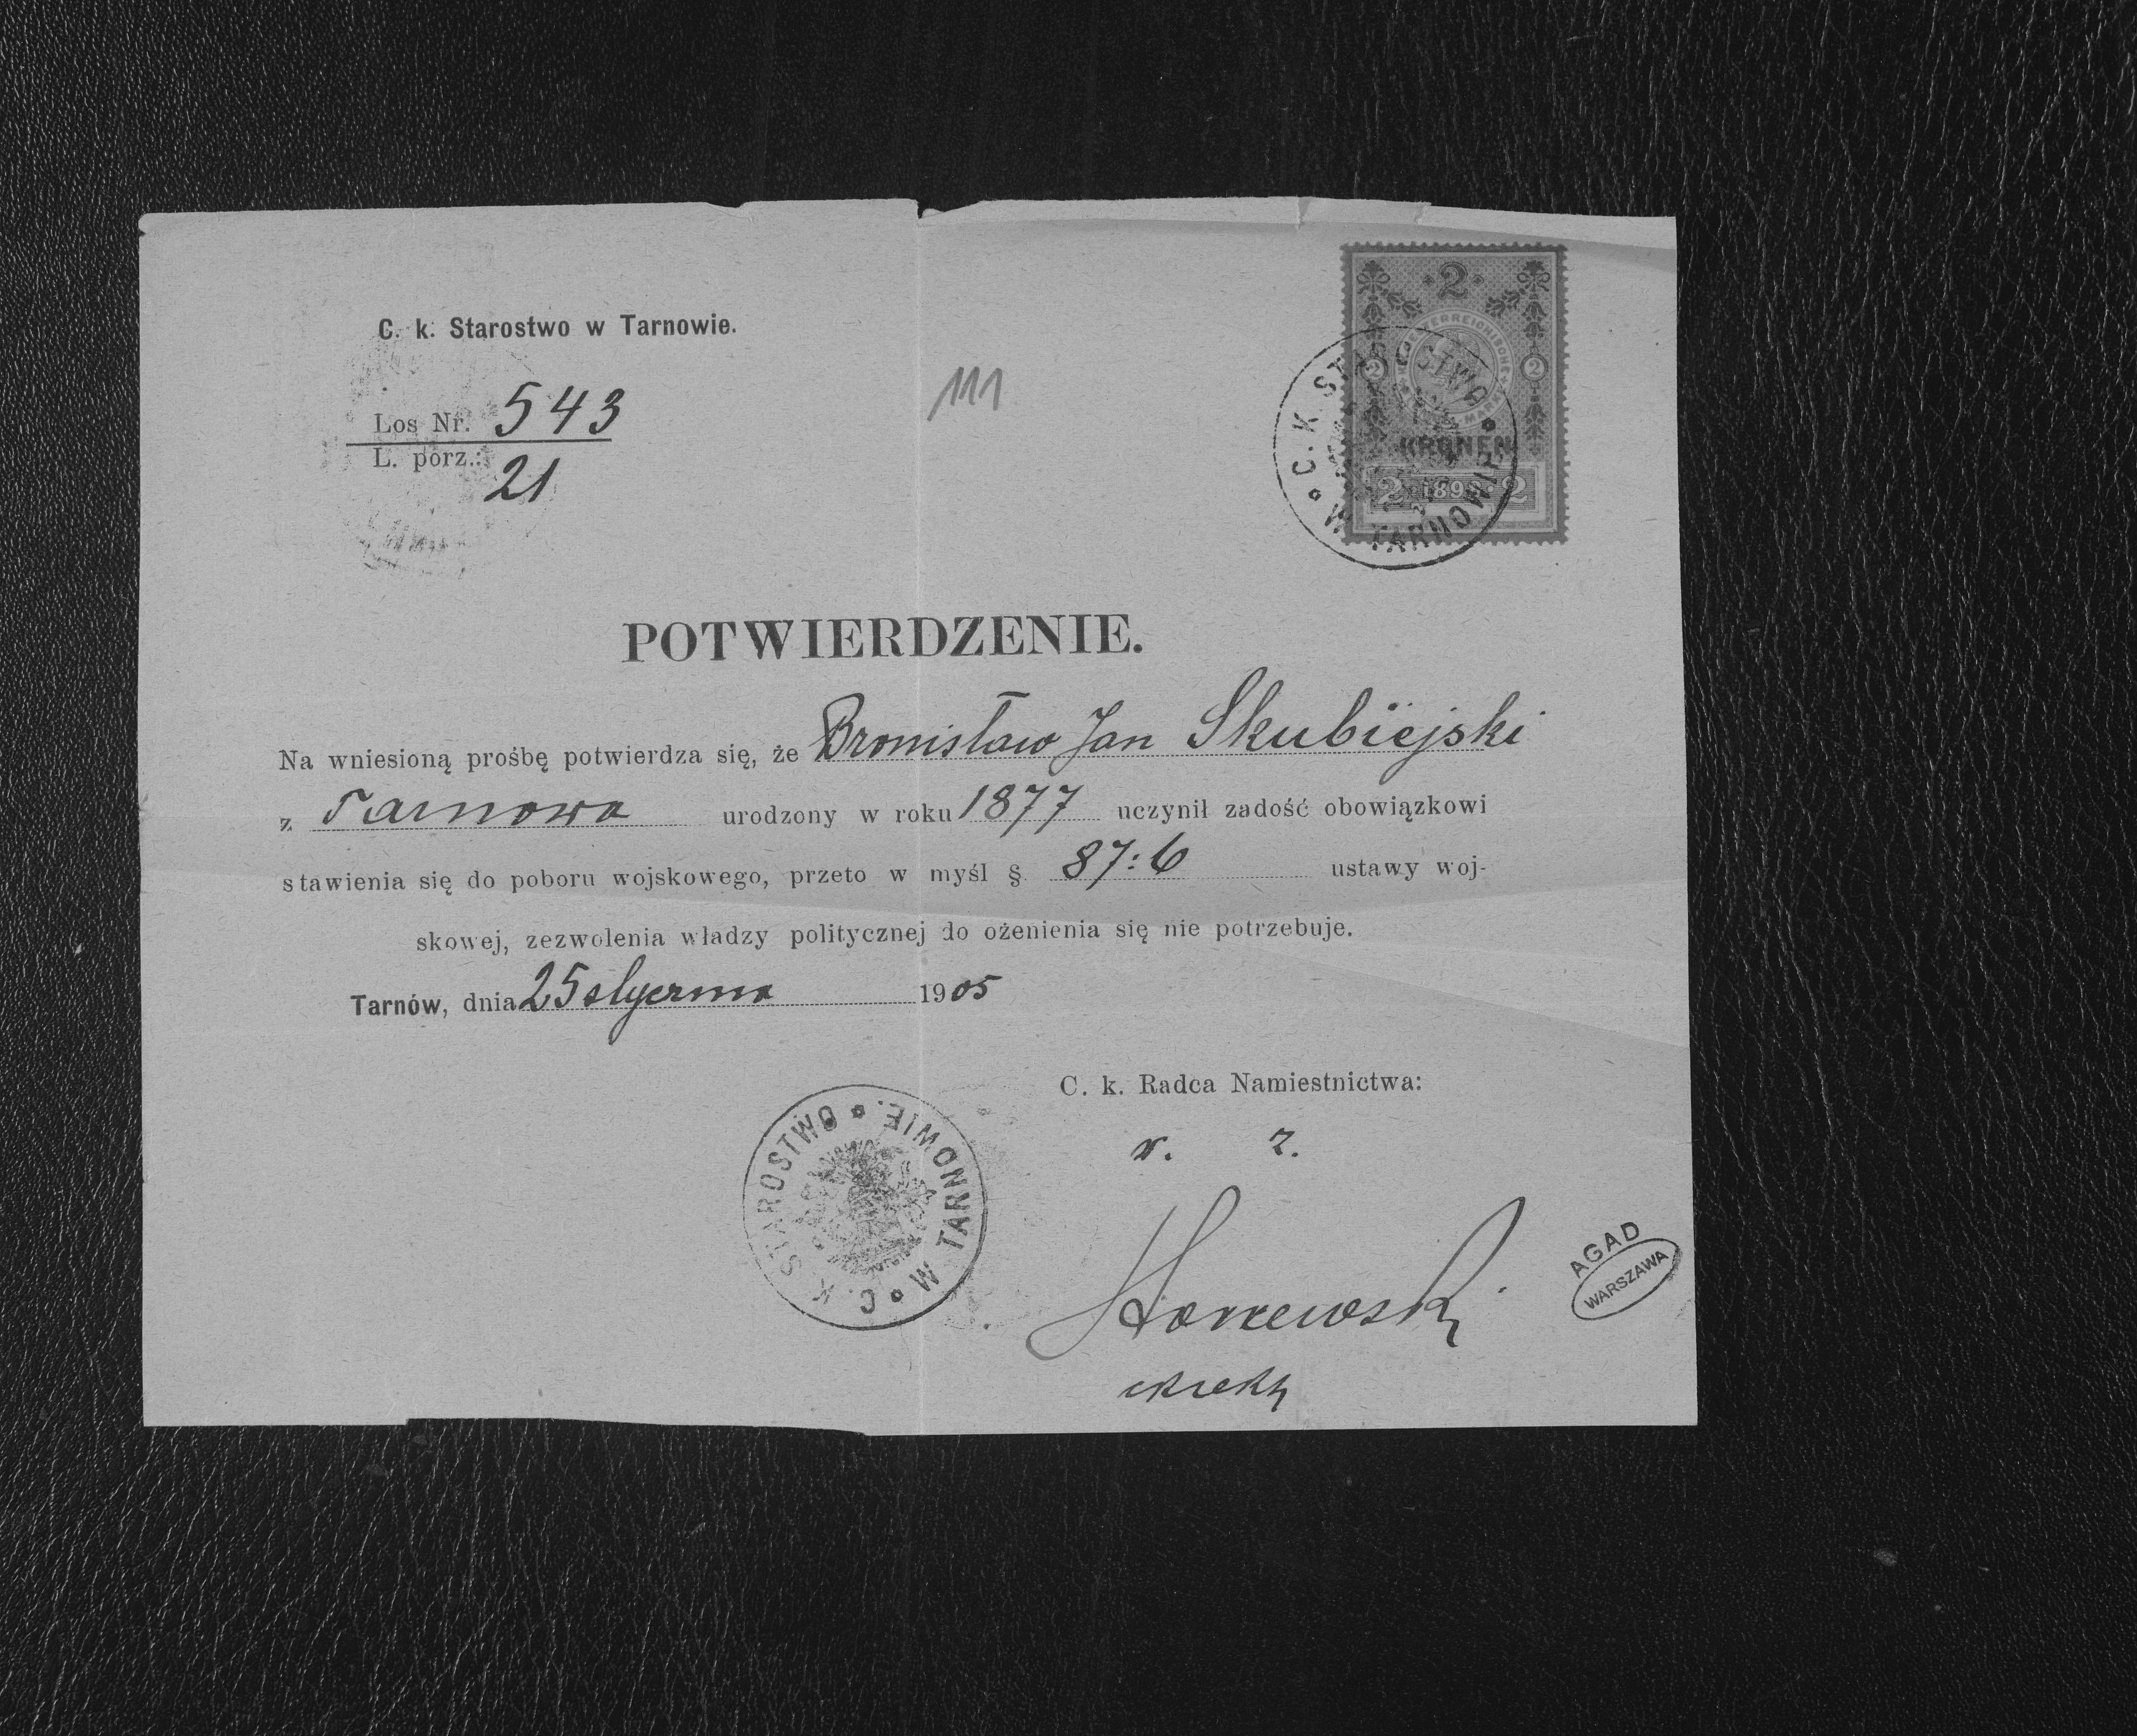 C. k. Starostwo w Tarnowie.
Los Nr. 543
L. porz.: 21
111
2
ÖSTERREICHISCHE
2 2
KRONEN
2 189 2
C. K. STAROSTWO W TARNOWIE
POTWIERDZENIE.
Na wniesioną prośbę potwierdza się, że Bronisław Jan Skubiejski
z Tarnowa urodzony w roku 1877 uczynił zadość obowiązkowi
stawienia się do poboru wojskowego, przeto w myśl § 87:6 ustawy woj-
skowej, zezwolenia władzy politycznej do ożenienia się nie potrzebuje.
Tarnów, dnia 25 stycznia 1905
C. k. Radca Namiestnictwa:
w. z.
C. K. STAROSTWO W TARNOWIE.
AGAD
WARSZAWA